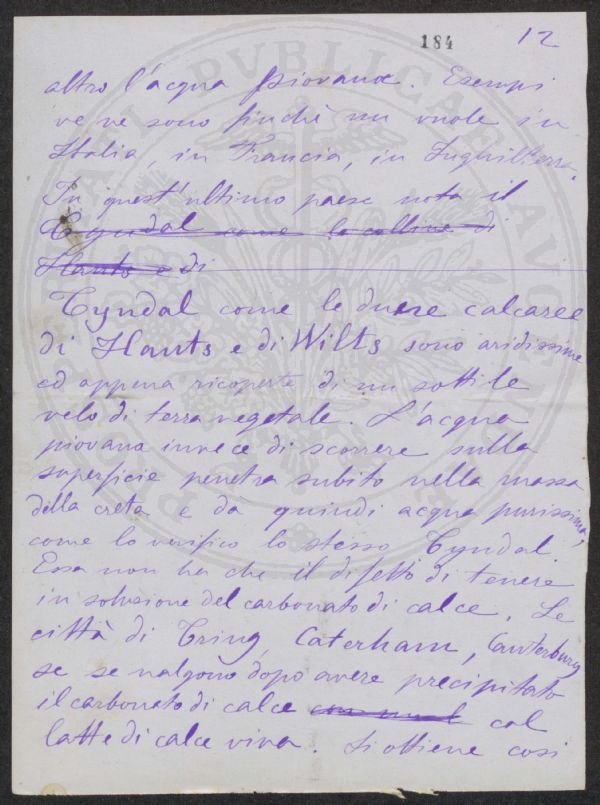 184 12
altro l'acqua piovana. Esempi
ve ne sono finchè un vuole in
Italia, in Francia, in Inghilterra.
In quest'ultimo paese nota il
Tyndal come le colline di
Hants e di
Tyndal come le dune calcaree
di Hants e di Wilts sono aridissime
ed appena ricoperte di un sottile
velo di terra vegetale. L'acqua
piovana invece di scorrere sulla
superficie penetra subito nella massa
della creta e dà quindi acqua purissima,
come lo verificò lo stesso Tyndal
Essa non ha che il difetto di tenere
in soluzione del carbonato di calce. Le
città di Tring, Caterham, Canterbury
se se valgono dopo avere precipitato
il carbonato di calce col
latte di calce viva. Si ottiene così